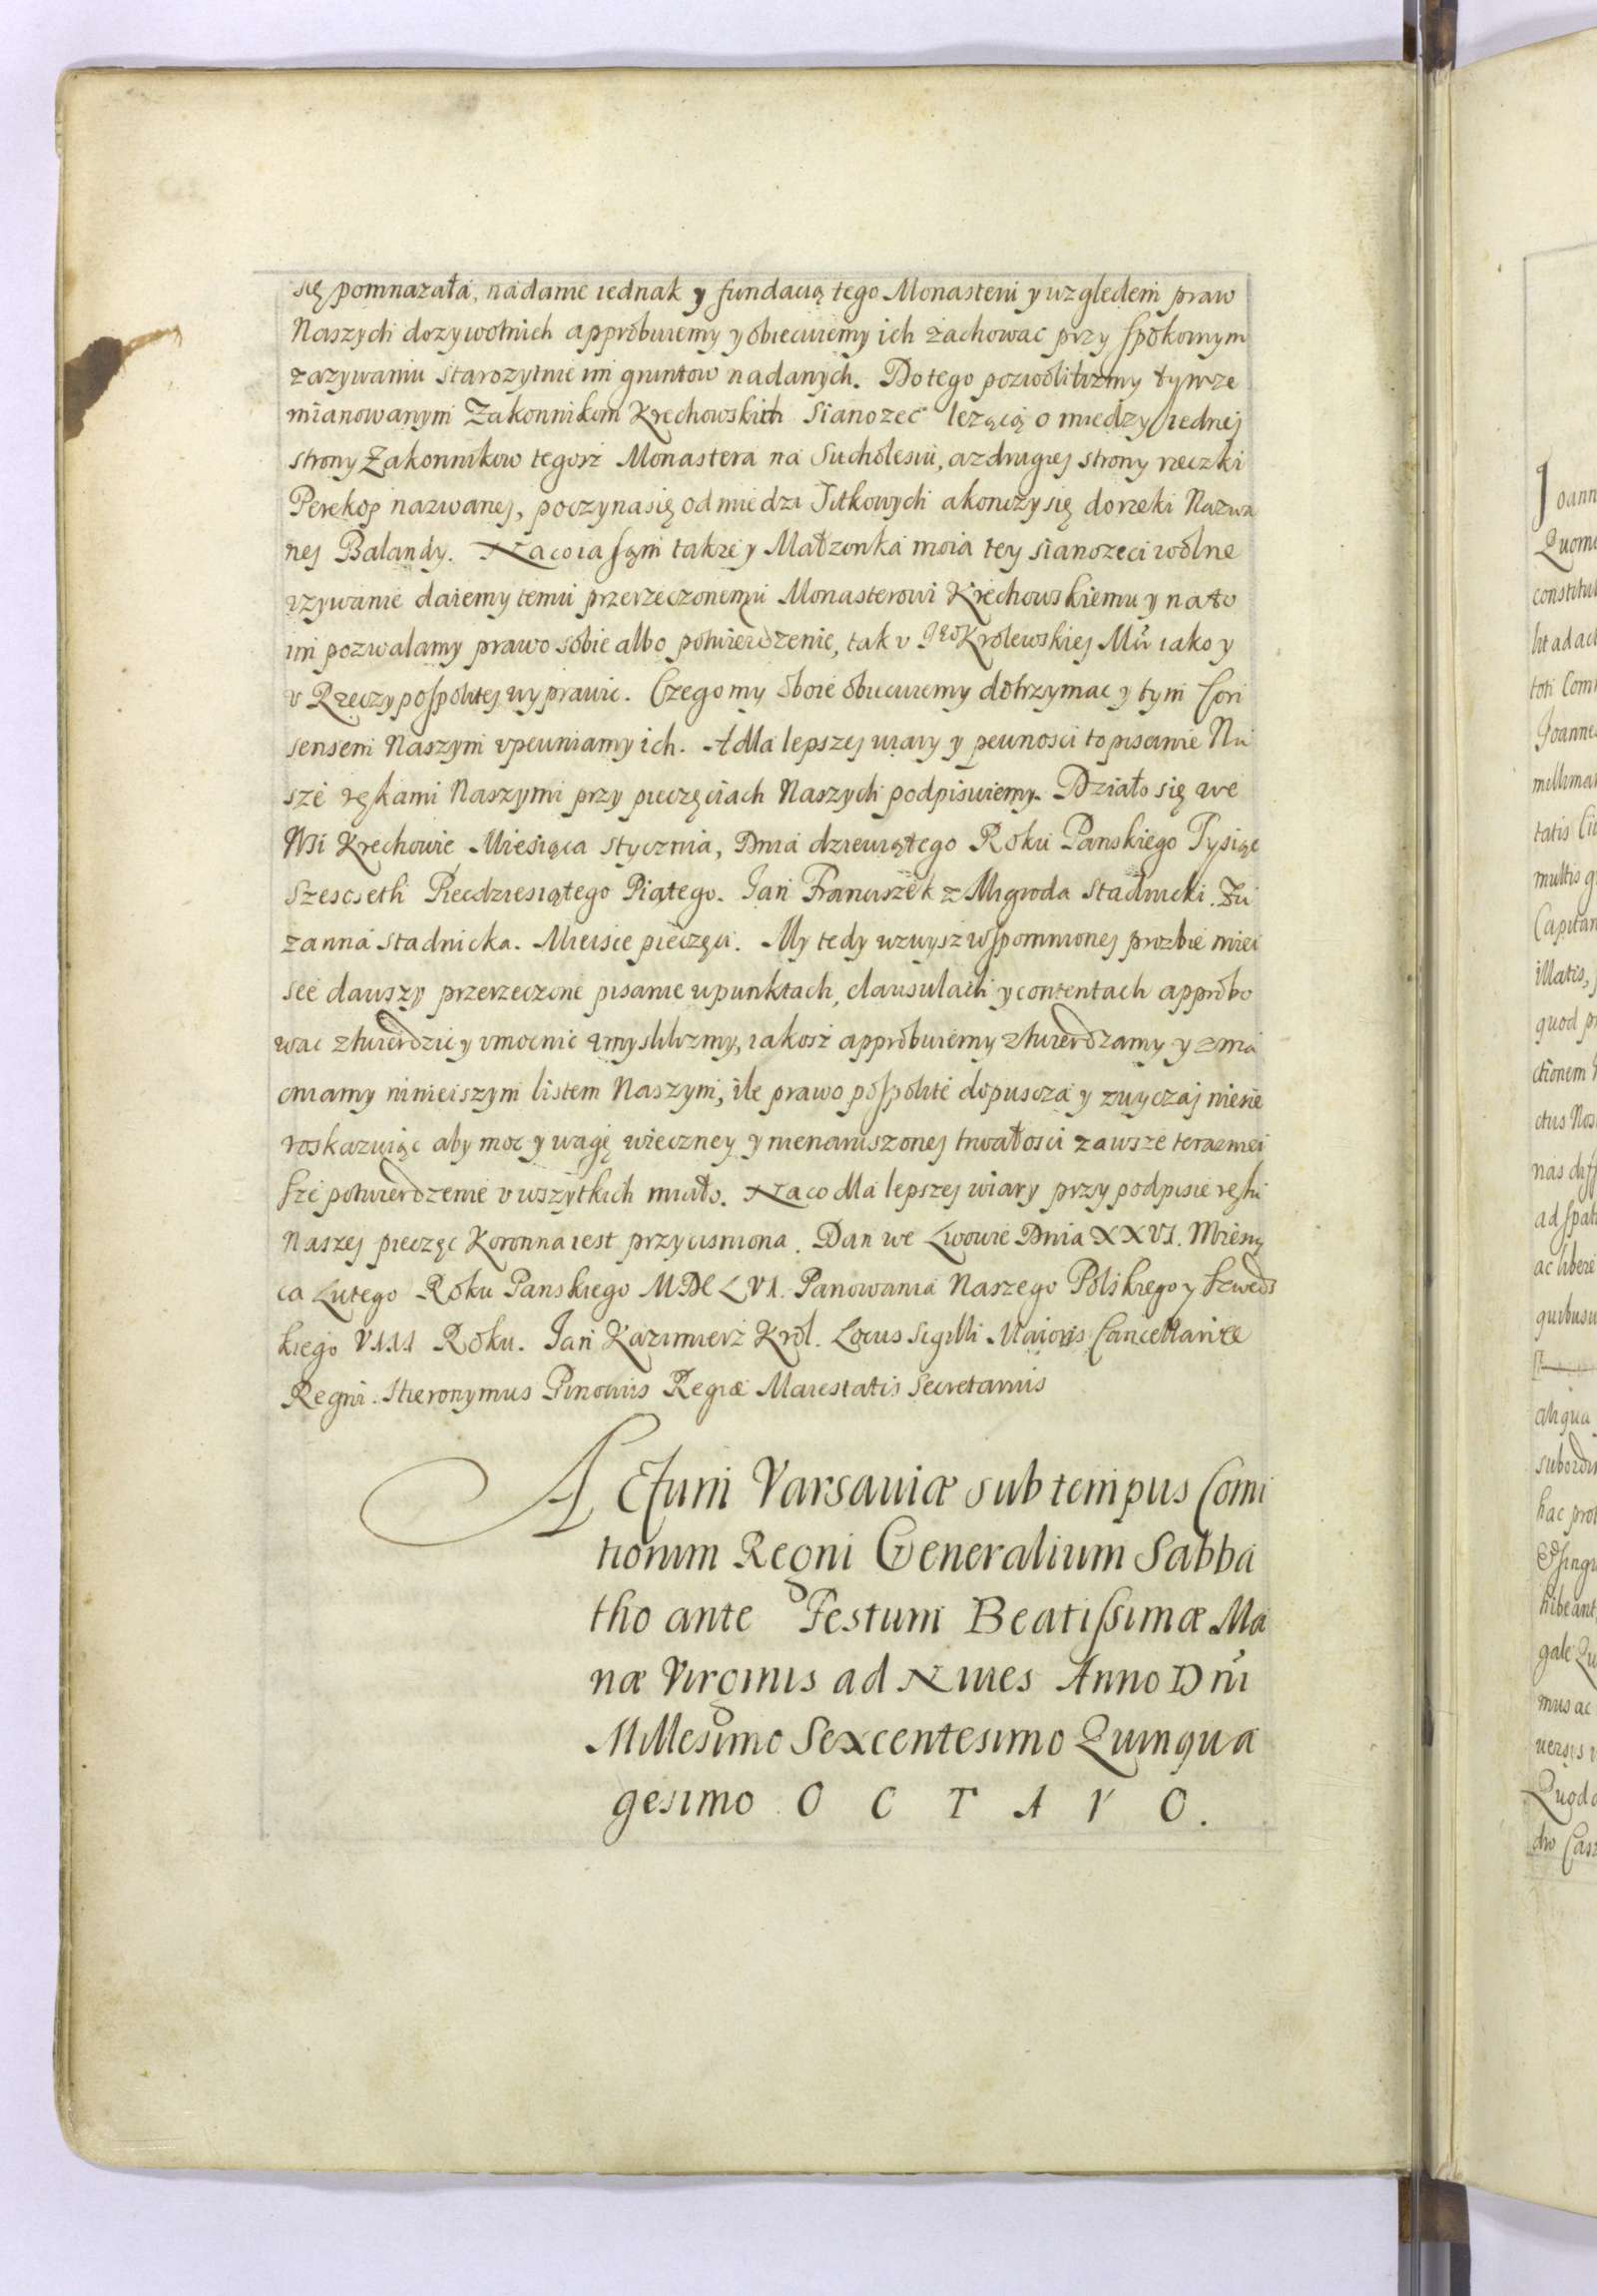 się pomnazała, nadanie iednak y fundacią tego Monasteru y względem praw
Naszych dozywotnich approbuiemy y obiecuiemy ich zachowac przy spokoinym
zazywaniu starozytnie im gruntow nadanych. Do tego pozwolilismy tymze
mianowanym Zakonnikom Krechowskich Sianozęc lezącą o miedzy iednej
strony Zakonnikow tegosz Monastera na Sucholesiu, a z drugiej strony rzeczki
Perekop nazwanej, poczyna się od miedzi Jutkowych a konczy się do rzeki Nazwa
nej Balandy. Na co ia sam takze y Małzonka moia tey sianozeci wolne
uzywanie daiemy temu przerzeczonemu Monasterowi Krechowskiemu y na to
im pozwalamy prawo sobie albo potwierdzenie, tak v Jeo Krolewskiej Mci iako y
v Rzeczypospolitej wyprawic. Czego my oboie obiecuiemy dotrzymac y tym Con
sensem Naszym vpewniamy ich. A dla lepszej wiary y pewnosci to pisanie Na
sze rękami Naszymi przy pieczęciach Naszych podpisuiemy. Działo się we
Wsi Krechowie Miesiąca Stycznia, Dnia dziewiątego Roku Panskiego Tysiąc
Szescseth Piecdziesiątego Piątego. Jan Franciszek z Migroda Stadnicki. Zu
zanna Stadnicka. Mieisce pieczęci. My tedy wzwysz wspomnionej prozbie miei
sce dawszy przerzeczone pisanie w punktach, clausulach y contentach approbo
wac ztwierdzic y vmocnic vmyslilismy, iakosz approbuiemy ztwierdzamy y zma
cniamy ninieiszym listem Naszym, ile prawo pospolite dopuscza y zwyczaj niesie
roskazuiąc aby moc y wagę wieczney y nienaruszonej trwałosci zawsze teraznei
sze potwierdzenie v wszytkich miało. Na co dla lepszej wiary przy podpisie ręki
Naszej pieczęc Koronna iest przycisniona. Dan we Lwowie Dnia XXVI. Miesią
ca Lutego Roku Panskiego MDCLVI. Panowania Naszego Polskiego y Szweds
kiego VIII Roku. Jan Kazimierz Krol. Locus Sigilli Maioris Cancellariæ
Regni. Hieronymus Pinocius Regiæ Maiestatis Secretarius
Actum Varsaviæ sub tempus Comi
tiorum Regni Generalium Sabba
tho ante Festum Beatissimæ Ma
riæ Virginis ad Nives Anno Dni
Millesimo Sexcentesimo Quinqua
gesimo OCTAVO.
Joann
Quom
constitu
lit ad act
toti Com
Joanne
tatis
multis
Capitan
illatis,
quod
ctionem
ctus Nos
nas
ad spat
ac libere
quibus
aliqua
hac
hibeant
gale
mus ac
Quod